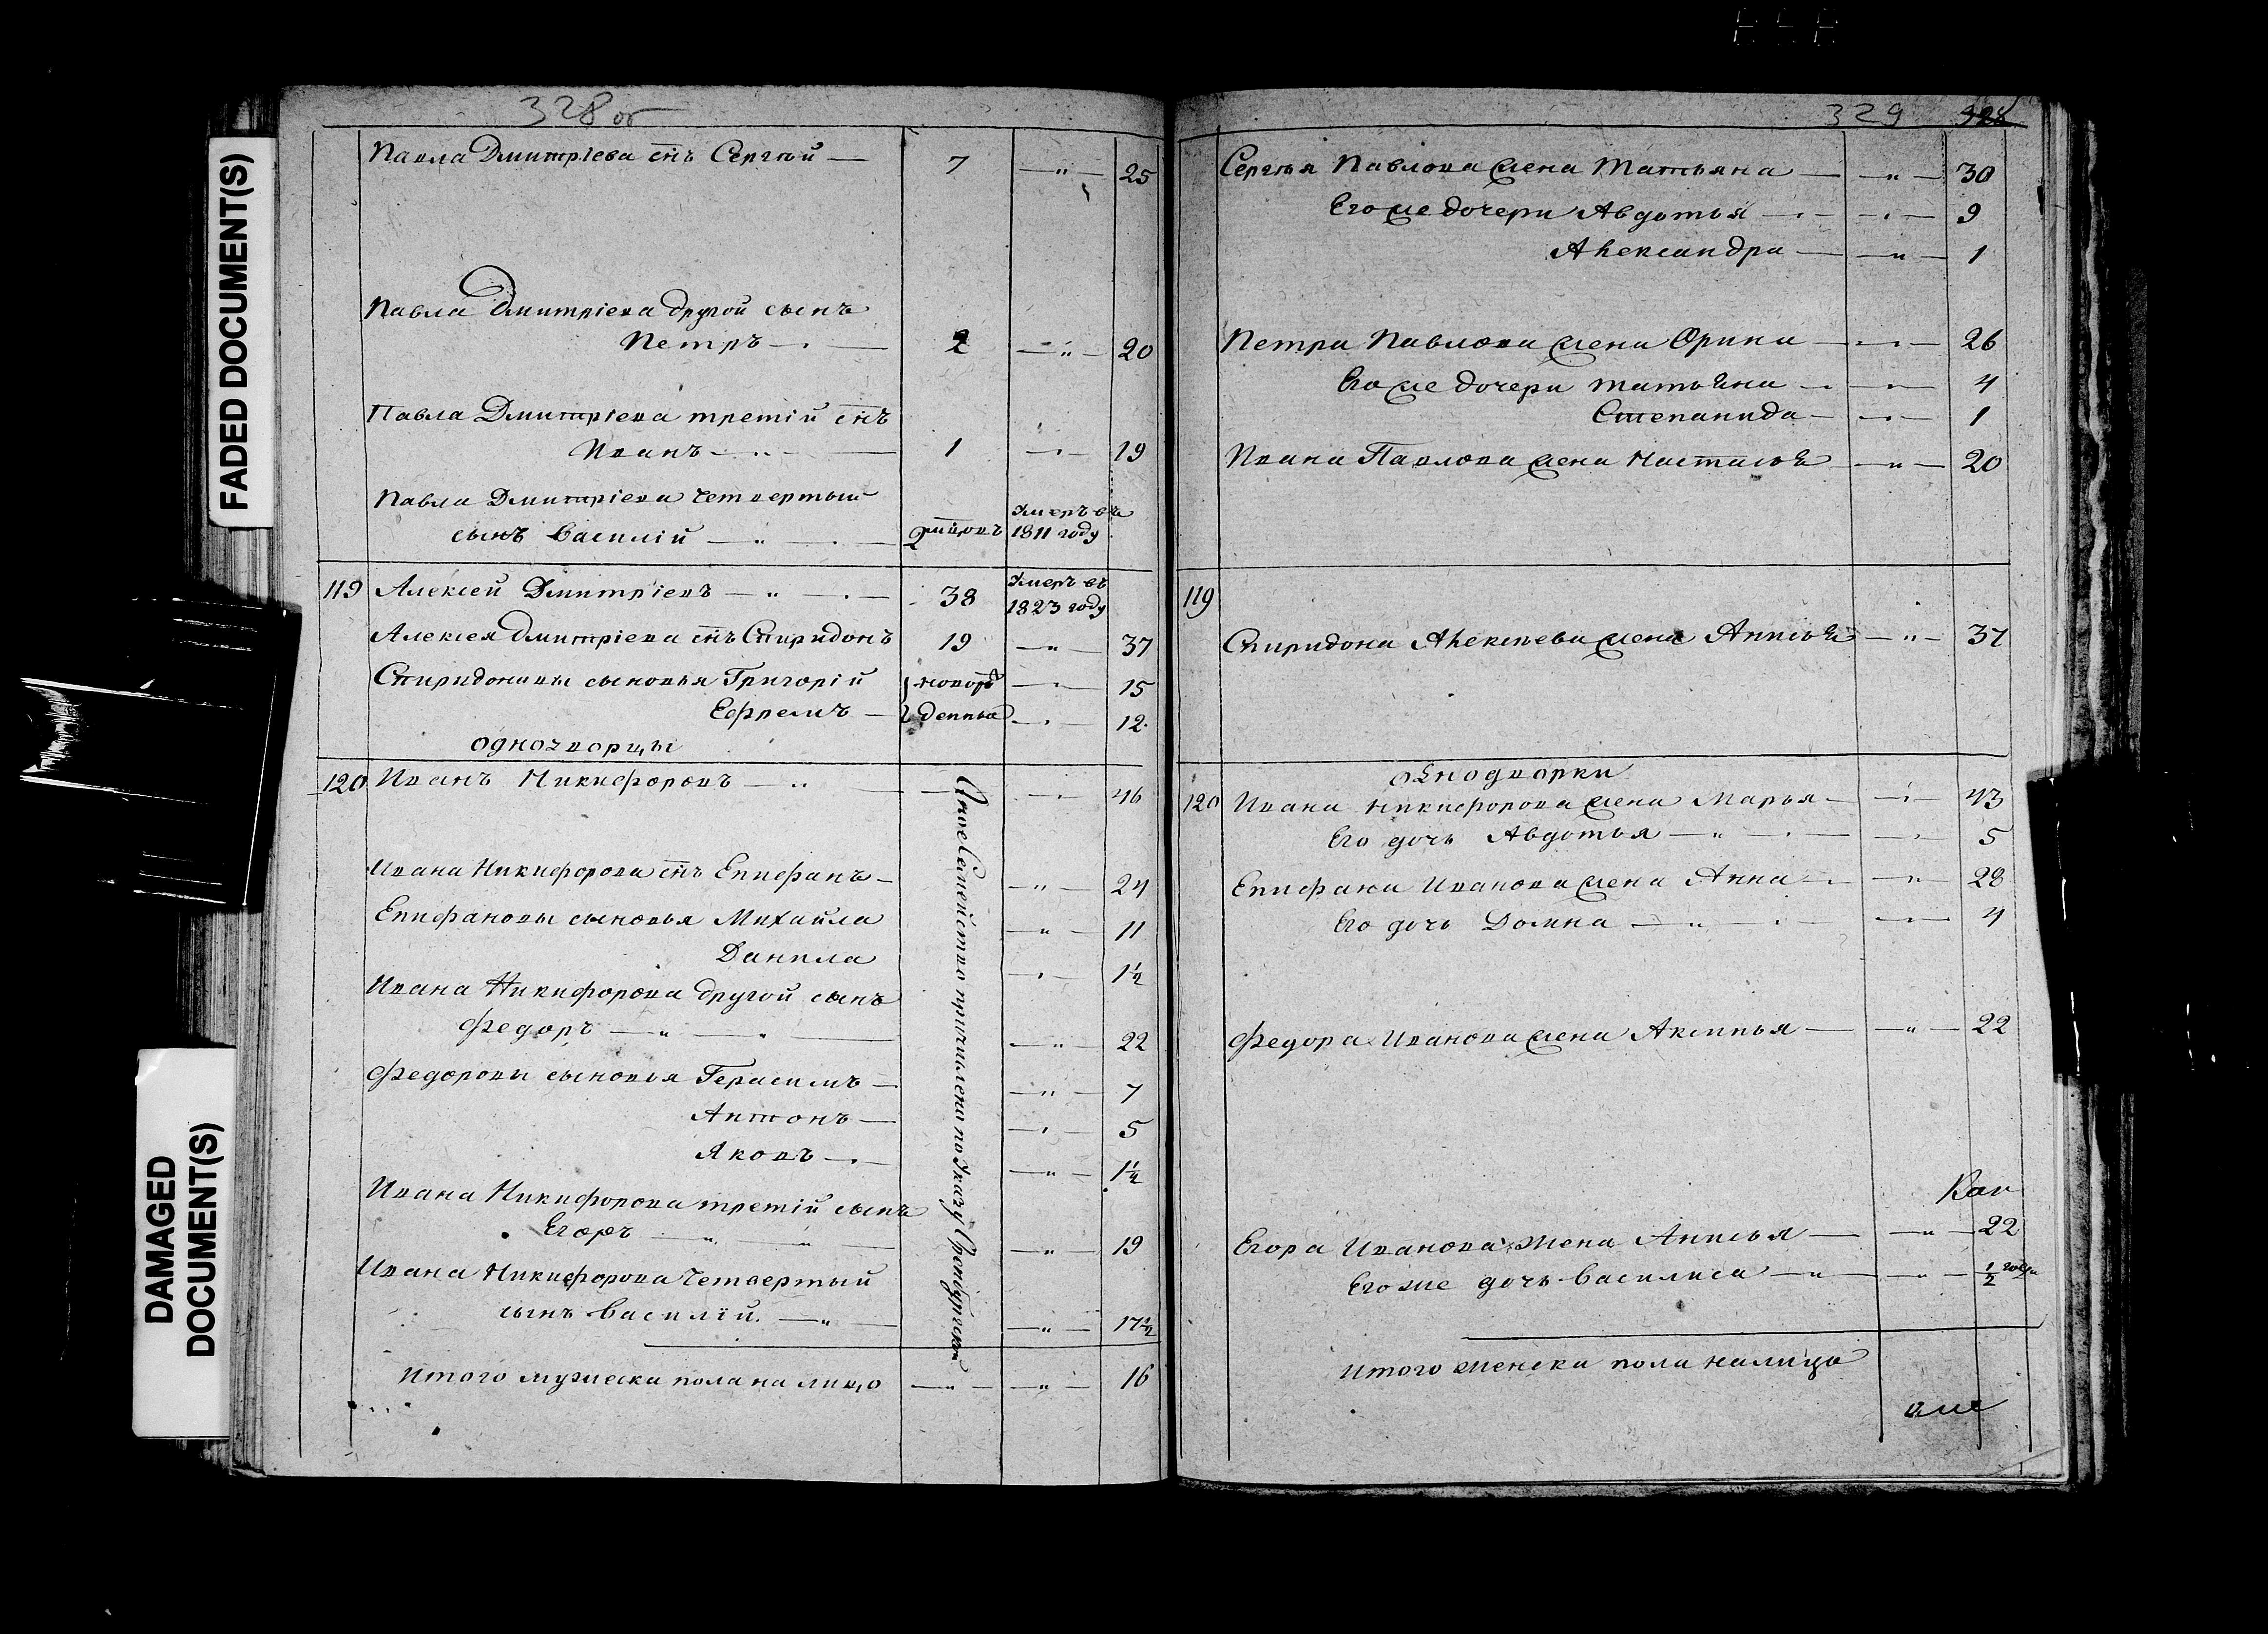 FADED DOCUMENT(S)
DAMAGED DOCUMENT(S)
328 об
Павла Дмитріева снъ Сергѣй — 7 — " — 25
Павла Дмитріева другой сынъ
Петръ — 2 — " — 20
Павла Дмитріева третій снъ
Иванъ — 1 — " — 19
Павла Дмитріева четвертый умеръ въ
сынъ Василій — " — 1811 году
119 Алексей Дмитріевъ — " — 38 умеръ въ 1823 году
Алексея Дмитріева снъ Спиридонъ 19 — " — 37
Спиридоновы сыновья Григорій новорож — " — 15
Ефремъ — денныа — " — 12
однодворцы
120 Иванъ Никифоровъ — " — 46
Ивана Никифорова снъ Епифанъ — " — 24
Епифановы сыновья Михайла — " — 11
Данила — " — 1½
Ивана Никифорова другой сынъ
Федоръ — " — 22
Федоровы сыновья Герасимъ — " — 7
Антонъ — " — 5
Яковъ — " — 1½
Ивана Никифорова третій сынъ
Егоръ — " — 19
Ивана Никифорова четвертый
сынъ Василій — " — 17½
Оное Семейство причислено по Указу Оренбургской
Итого мужеска пола на лицо — " — " — 16
329 328
Сергѣя Павлова жена Татьяна — " — 30
Его же дочери Авдотья — " — 9
Александра — " — 1
Петра Павлова жена Орина — " — 26
Его же дочери Татьяна — " — 4
Степанида — " — 1
Ивана Павлова жена Настасья — " — 20
119
Спиридона Алексѣева жена Анисья — " — 37
однодворки
120 Ивана Никифорова жена Марья — " — 43
Его дочь Авдотья — " — 5
Епифана Иванова жена Анна — " — 28
Его дочь Домна — " — 4
Федора Иванова жена Аксинья — " — 22
Егора Иванова жена Анисья — " — 22
Его же дочь Василиса — " — ½ года
Итого женска пола налицо